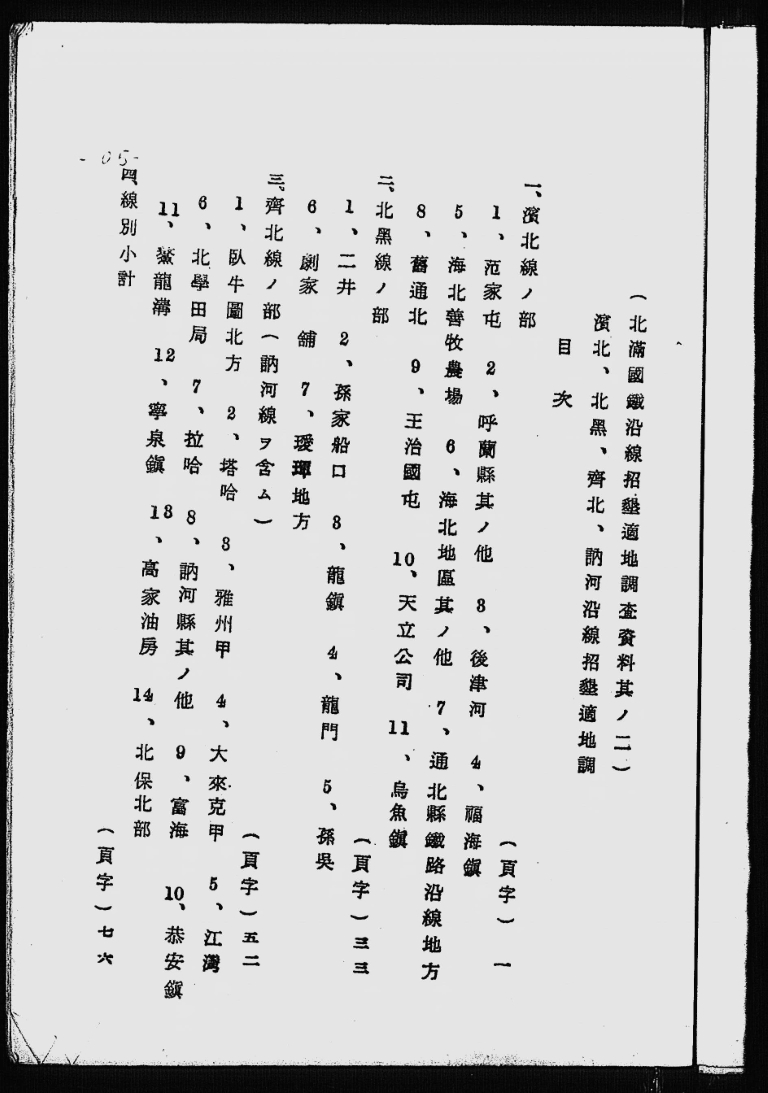 (北滿國鐵沿線招墾適地調査資料其ノ二)
濱北、北黑、齊北、訥河沿線招墾適地調
目次
一、濱北線ノ部 (頁字) 一
1、范家屯 2、呼蘭縣其ノ他 3、後津河 4、福海鎭
5、海北善牧農場 6、海北地區其ノ他 7、通北縣鐵路沿線地方
8、舊通北 9、王治國屯 10、天立公司 11、烏魚鎭
二、北黑線ノ部 (頁字) 三三
1、二井 2、孫家船口 3、龍鎭 4、龍門 5、孫吳
6、劇家舖 7、璦琿地方
三、齊北線ノ部(訥河線ヲ含ム) (頁字) 五二
1、臥牛圖北方 2、塔哈 3、雅州甲 4、大來克甲 5、江灣
6、北學田局 7、拉哈 8、訥河縣其ノ他 9、富海 10、恭安鎭
11、鰲龍溝 12、寧泉鎭 13、高家油房 14、北保北部
四、線別小計 (頁字) 七六
-05-